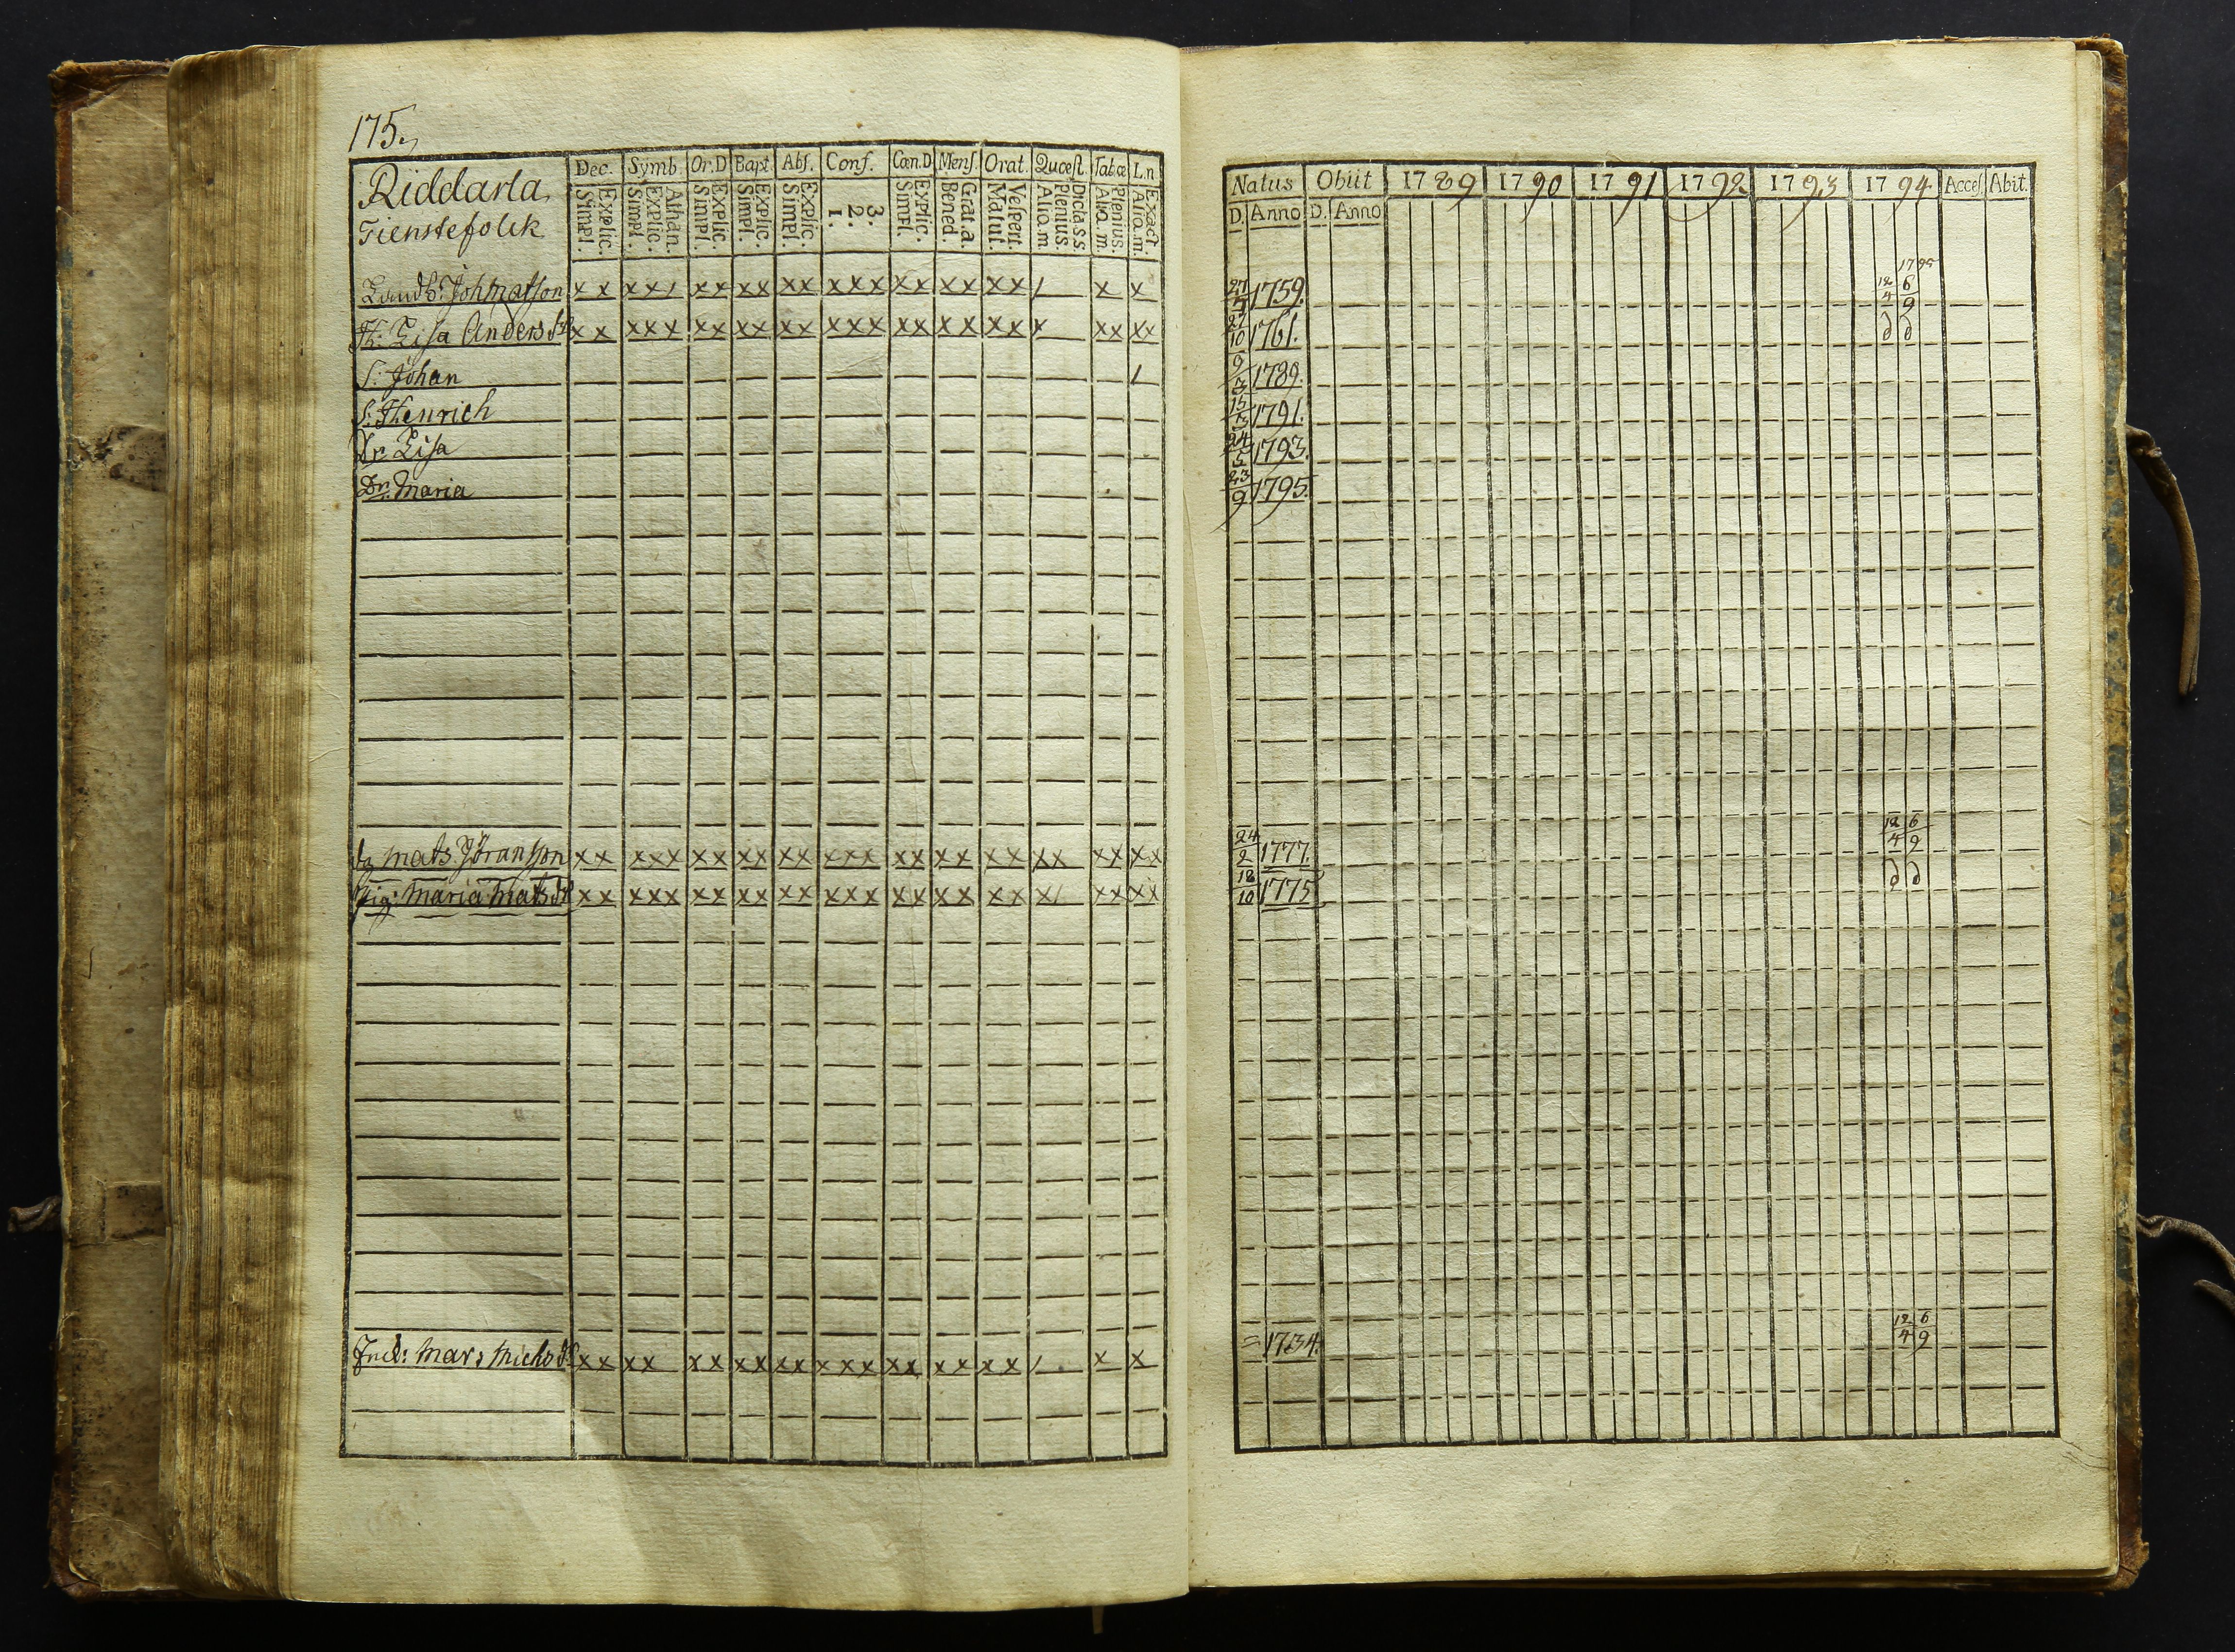 175.
Dec. Symb. Or.D Bapt. Abſ. Conf. Cœn.D Menſ. Orat. Quœſt. Tabœ L.n
Riddarla
Tienstefolck
Simpl. Explic. Simpl. Explic. Athan. Simpl. Explic. Simpl. Explic. Simpl. Explic. 1. 2. 3. Simpl. Explic. Bened. Grat.a. Matut. Veſpert. Aliq.m. Plenius. Dicta s.s. Aliq.m. Plenius. Aliq.m. Exact.
Landb: Joh Matſson x x x x / x x x x x x x x x x x x x x x / x x
H: Liſa Anders dr x x x x x x x x x x x x x x x x x x x x x x x x x
S: Johan /
S: Henrich
Dr: Liſa
Dr: Maria
Mats Jöranſson x x x x x x x x x x x x x x x x x x x x x x x x x
Pig: Maria Mats dr x x x x x x x x x x x x x x x x x x x x / x x x x
Mar: Michs dr x x x x x x x x x x x x x x x x x x x / x x
Natus Obiit 1789 1790 1791 1792 1793 1794 Acceſ. Abit.
D. Anno D. Anno
1759. 12/4 6/9
27/10 1761. d d
9/3 1789.
15/3 1791.
24/5 1793.
23/9 1795.
24/2 1777. 12/4 6/9
18/10 1775 d d
= 1734. 12/4 6/9